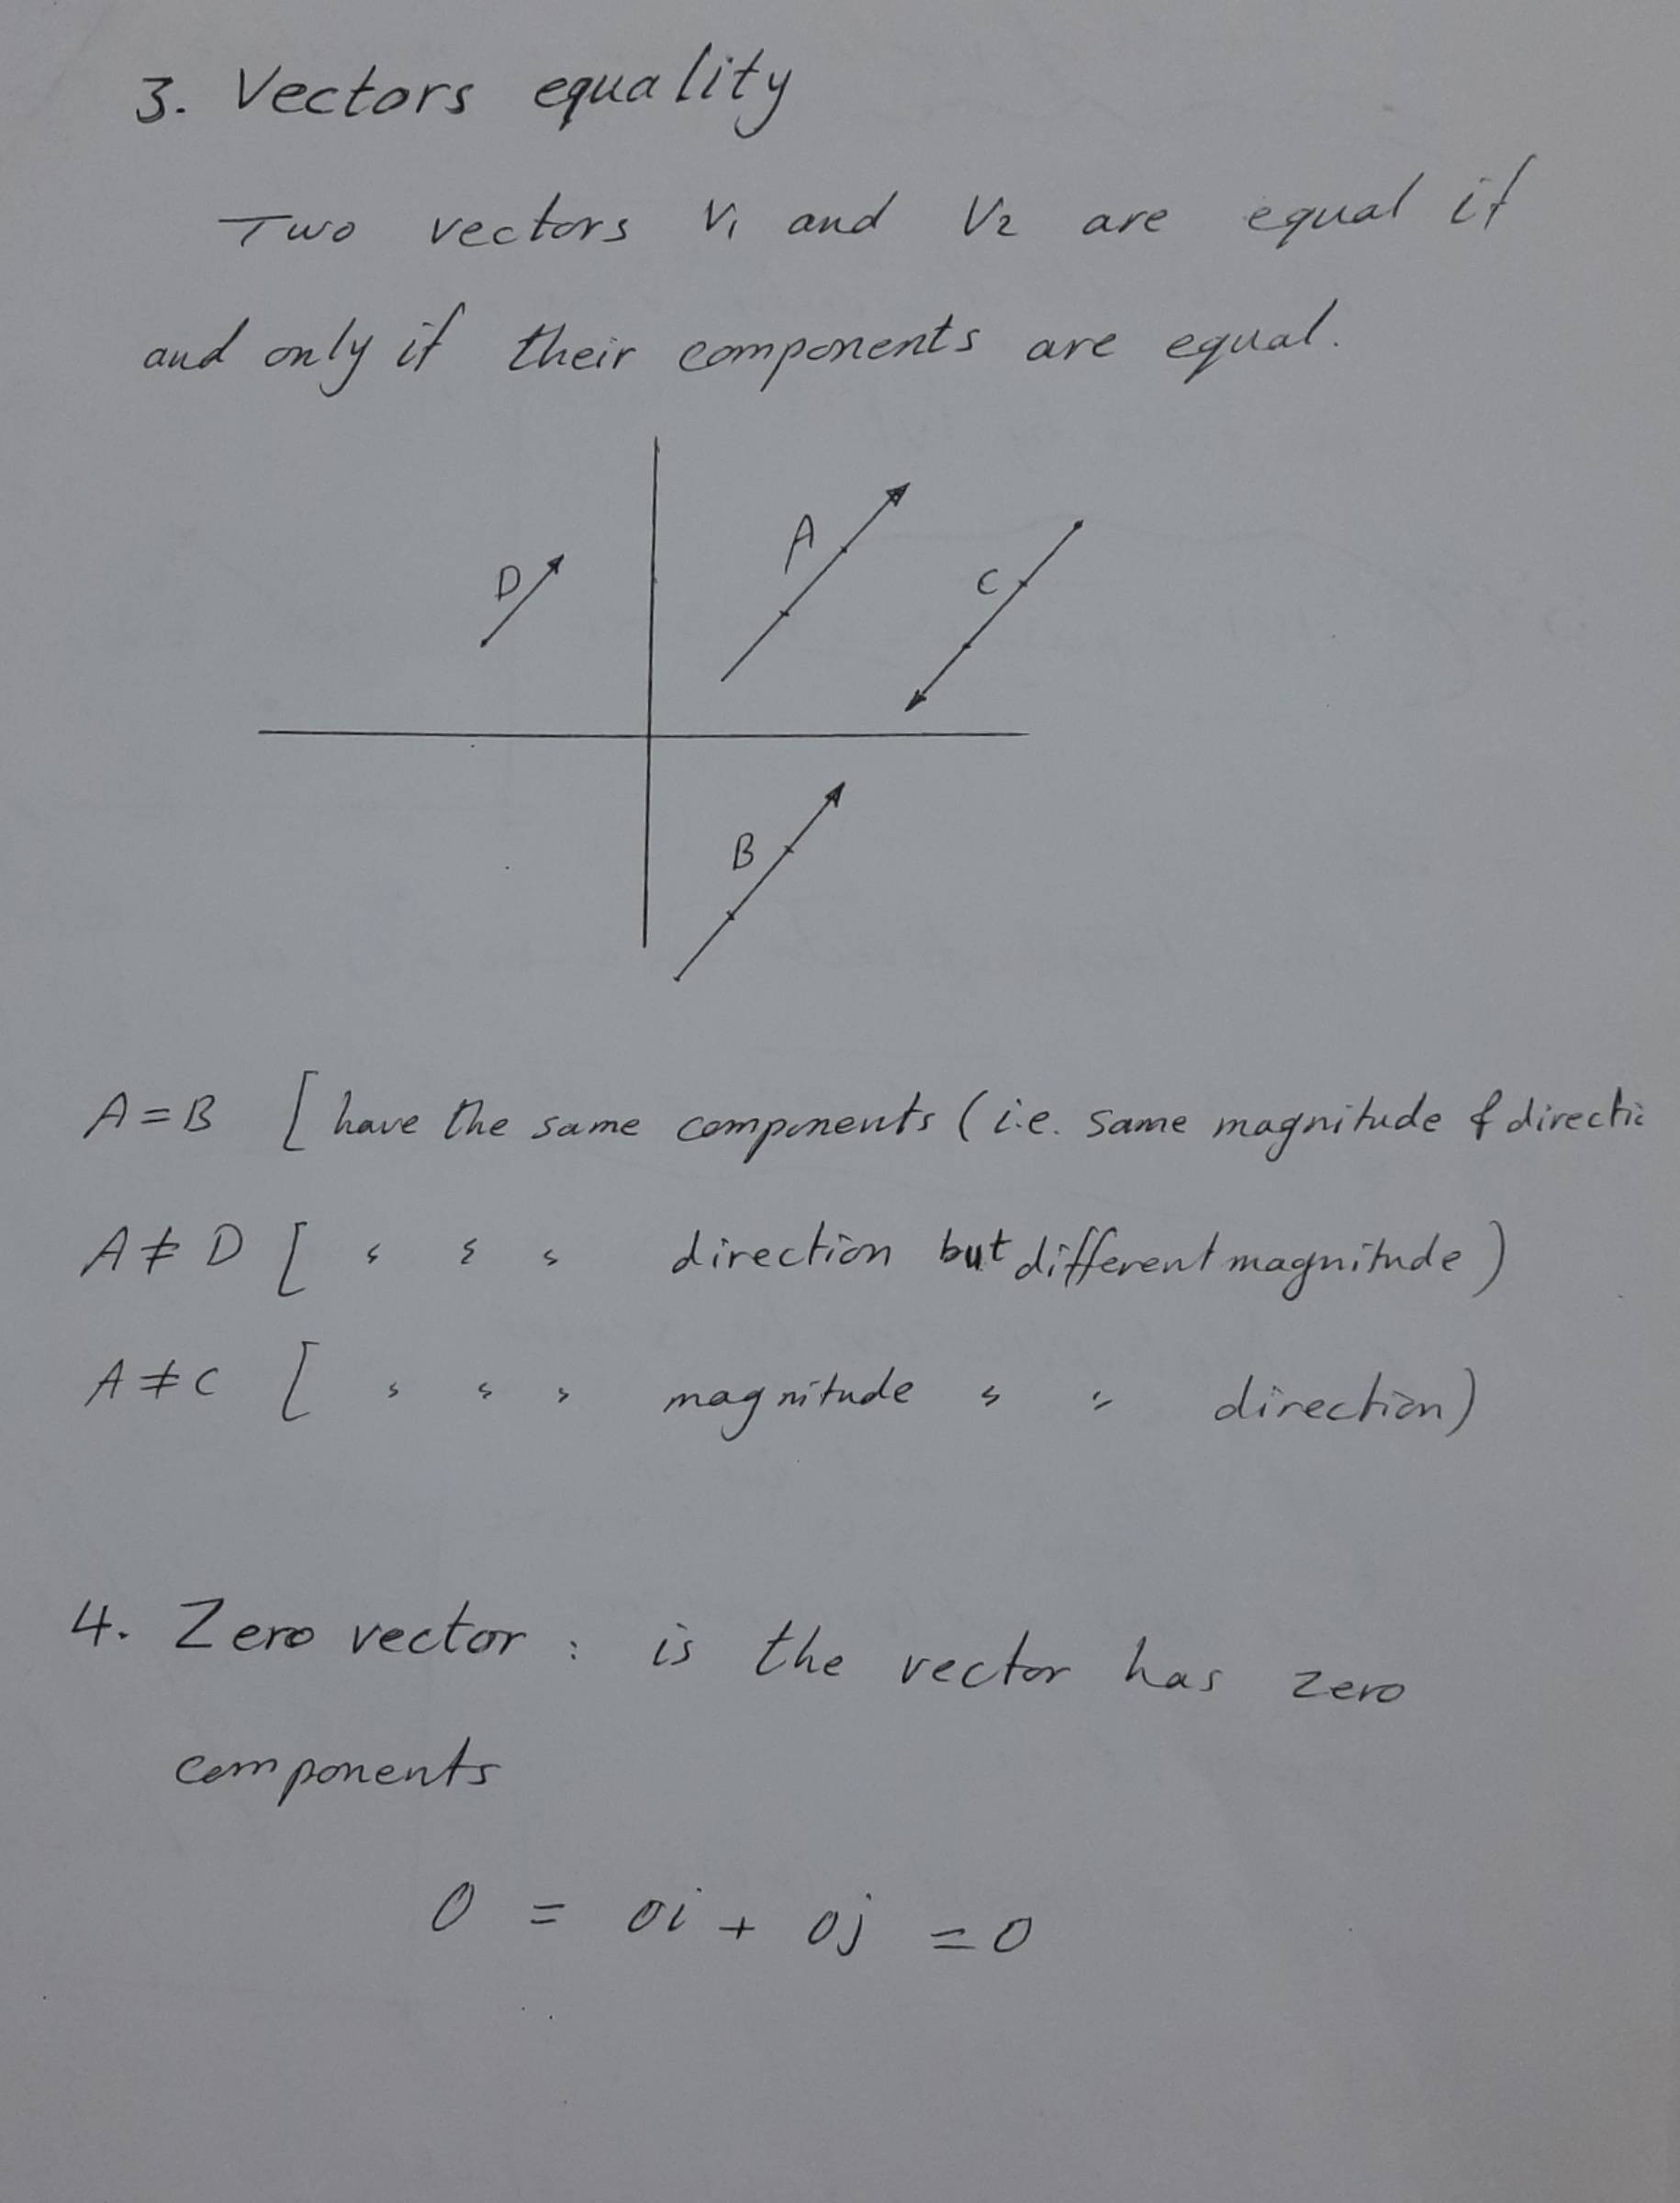 3. Vectors equality
Two vectors V₁ and V₂ are equal if
and only if their components are equal.
A
D
C
B
A = B [ have the same components (i.e. same magnitude & directi
A ≠ D [ " " " direction but different magnitude )
A ≠ C [ " " " magnitude " " direction)
4. Zero vector : is the vector has zero
components
0 = 0i + 0j = 0